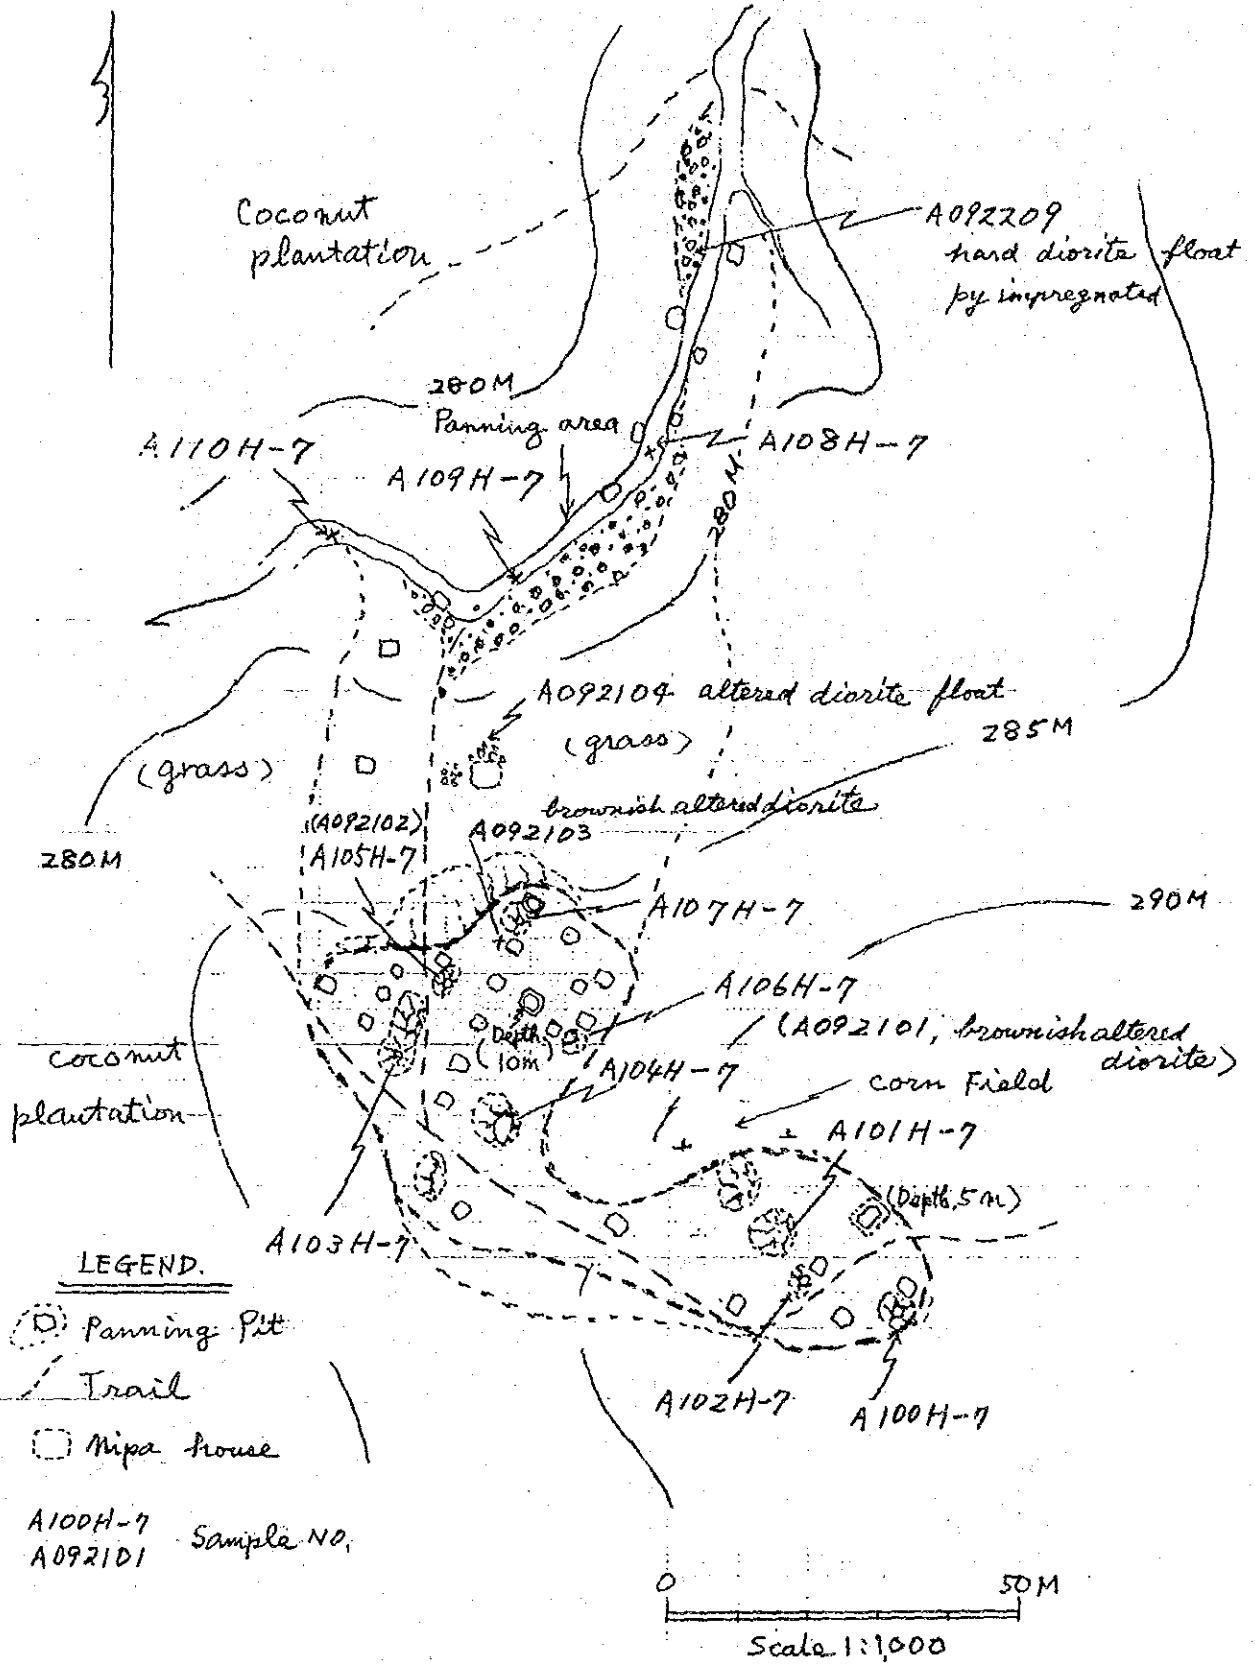 Coconut
plantation
A092209
hard diorite float
py impregnated
280M
Panning area
A110H-7
A109H-7
A108H-7
280M
A092104 altered diorite float
(grass)
285M
(grass)
brownish altered diorite
(A092102)
A092103
A105H-7
280M
A107H-7
290M
A106H-7
(A092101, brownish altered
diorite)
(Depth
10m)
A104H-7
coconut
plantation
corn Field
A101H-7
(Depth, 5m)
A103H-7
LEGEND.
Panning Pit
Trail
Nipa house
A102H-7
A100H-7
A100H-7
A092101
Sample NO,
0 50M
Scale 1:1,000